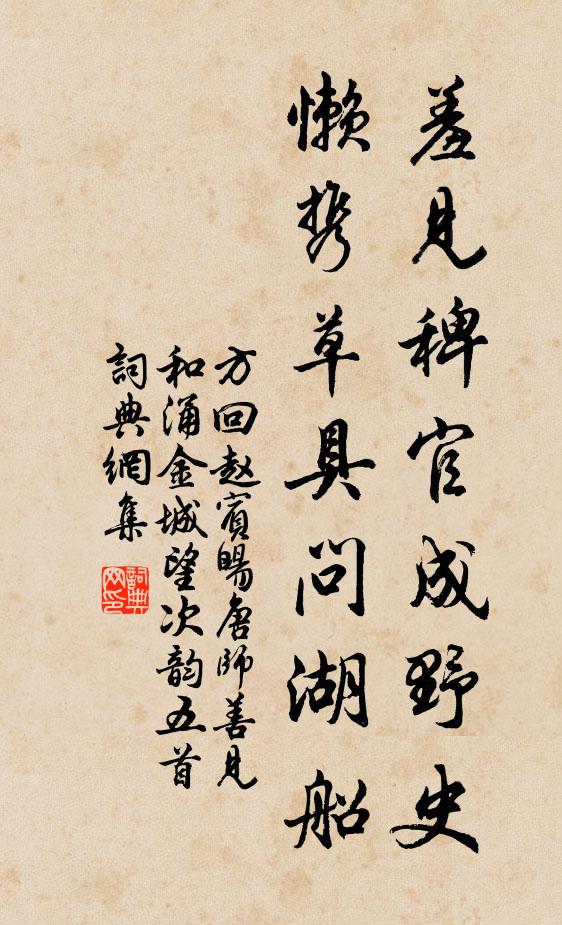 羞見稗官成野史
懒携草具问湖船
方回赵宾暘唐师善見
和涌金城望次韵五首
詞典網集
詞典网印